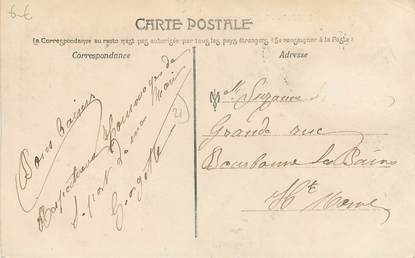 6-€
CARTE POSTALE
La Correspondance au recto n'est pas autorisée par tous les pays étrangers (Se renseigner à la Poste)
Correspondance
Adresse
Bons baisers
Respectueux Hommages de
part de ma
Mlle Suzanne
Grande rue
Bourbonne les Bains
Hte Marne